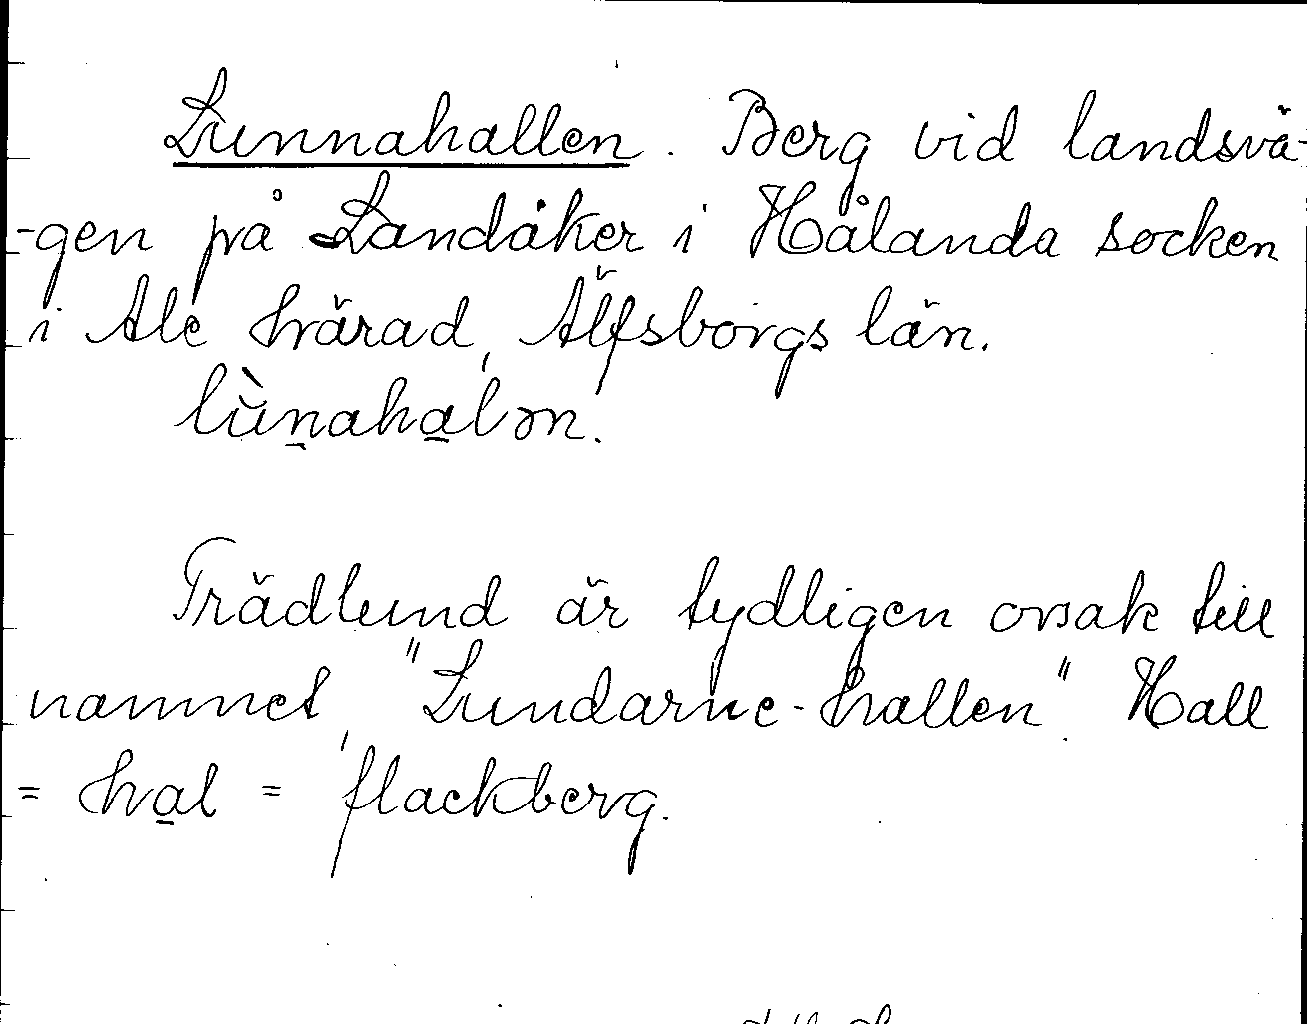 Lunnahallen. Berg vid landsvä-
-gen på Landåker i Hålanda socken
i Ale härad, Älfsborgs län.
lùn̠aha̠lən.
Trädlund är tydligen orsak till
namnet, "Lundarne-hallen". Hall
= ha̠l = flackberg.